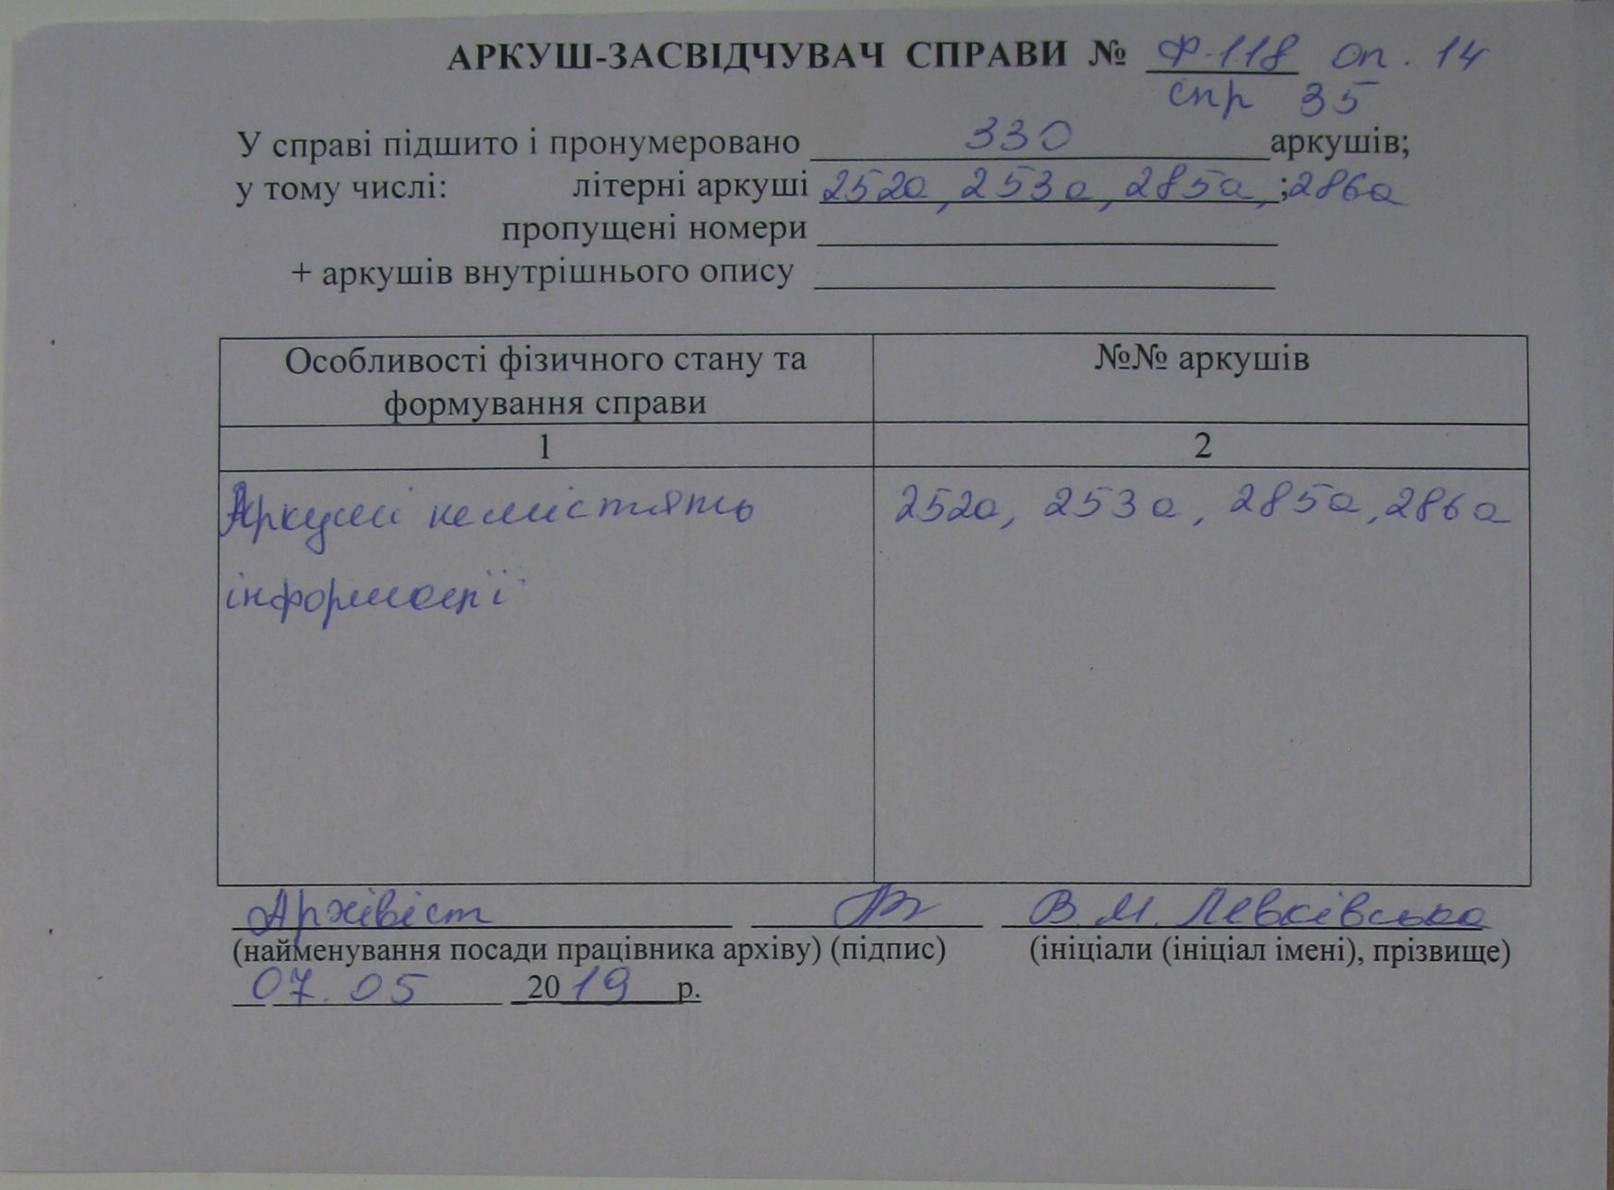 АРКУШ-ЗАСВІДЧУВАЧ СПРАВИ № Ф.118 оп. 14
спр 35
У справі підшито і пронумеровано 330 аркушів;
у тому числі: літерні аркуші 252а, 253а, 285а, ;286а
пропущені номери
+ аркушів внутрішнього опису
Особливості фізичного стану та
формування справи
№№ аркушів
1
2
Аркуші не містять
інформації
252а, 253а, 285а, 286а
Архівіст В.М. Левківська
(найменування посади працівника архіву) (підпис) (ініціали (ініціал імені), прізвище)
07.05 2019 р.